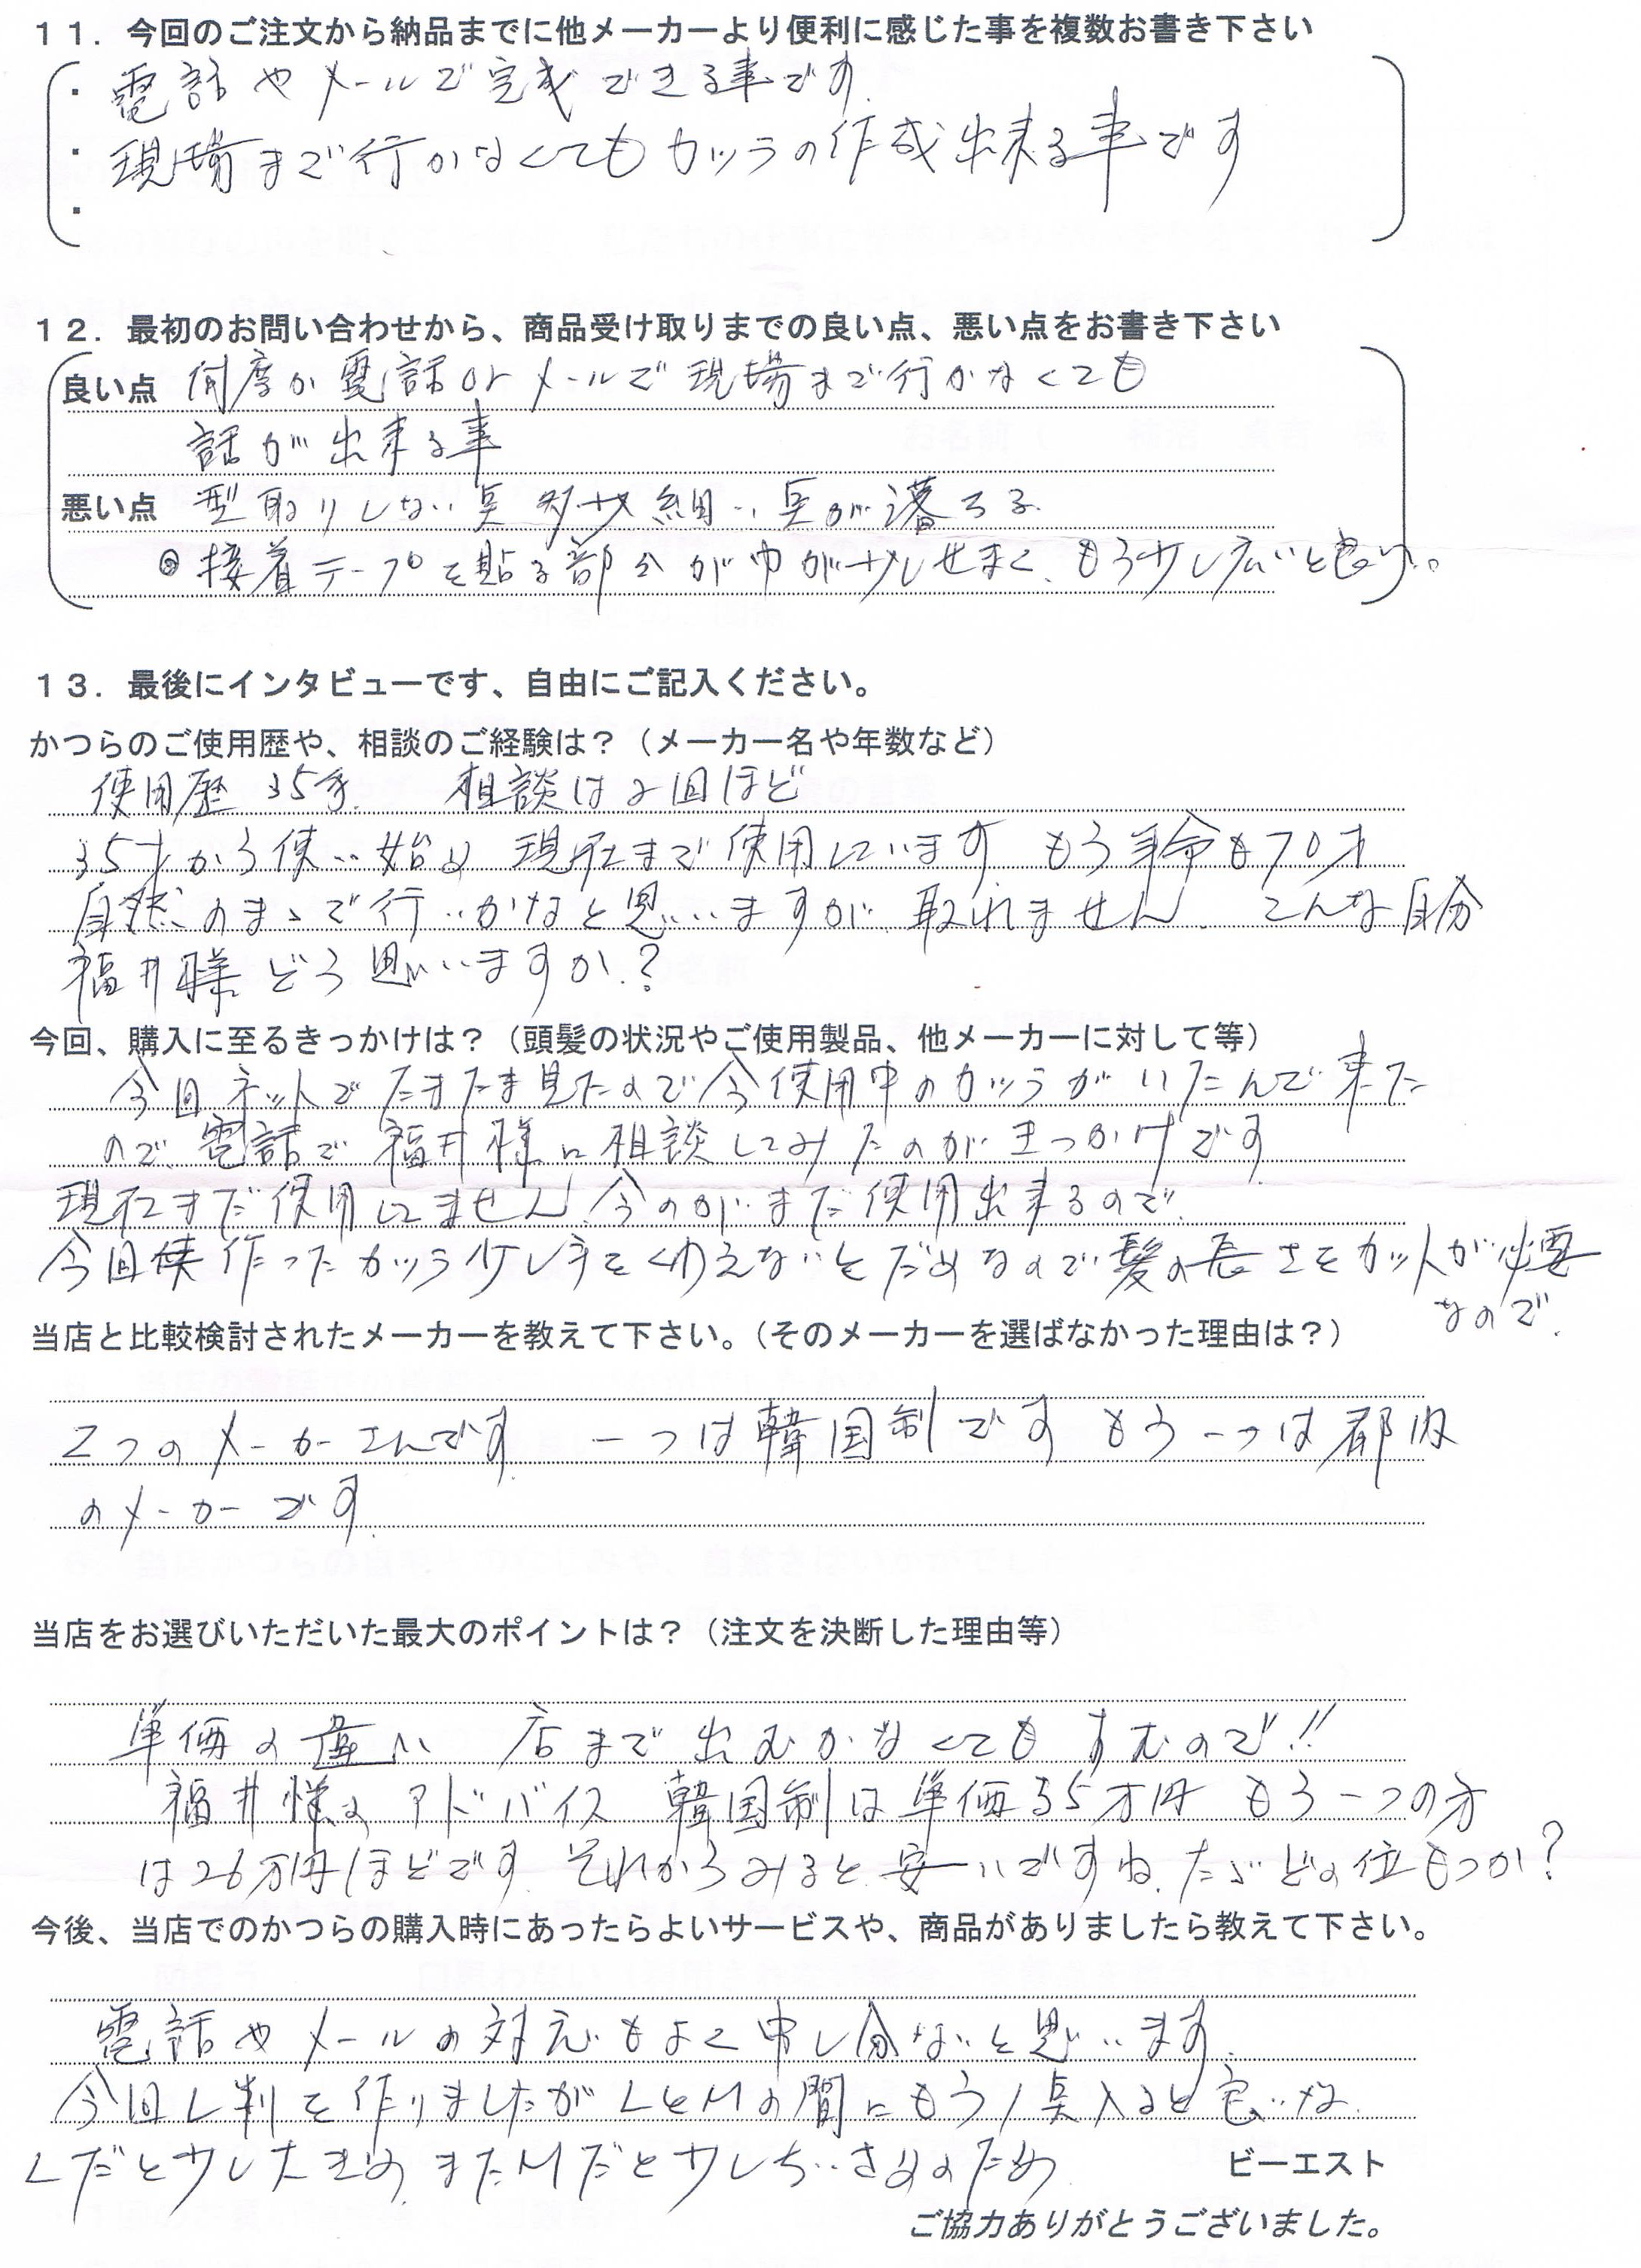 １１．今回のご注文から納品までに他メーカーより便利に感じた事を複数お書き下さい
・電話やメールで完成できる事です.
・現場まで行かなくてもカツラの作成出来る事です
・
１２．最初のお問い合わせから、商品受け取りまでの良い点、悪い点をお書き下さい
良い点 何度か電話orメールで現場まで行かなくても
話が出来る事
悪い点 型取りしない点 多少細い点が落ちる.
◎接着テープを貼る部分が巾が少しせまく、もう少し広いと良い。
１３．最後にインタビューです、自由にご記入ください。
かつらのご使用歴や、相談のご経験は？（メーカー名や年数など）
使用歴 35年. 相談は2回ほど
35才から使い始め 現在まで使用しています もう年令も70才
自然のまゝで行いかなと思いますが取れません. こんな自分
福井様どう思いますか.?
今回、購入に至るきっかけは？（頭髪の状況やご使用製品、他メーカーに対して等）
今回ネットでたまたま見たので今使用中のカツラがいたんで来た
ので、電話で福井様に相談してみたのがきっかけです
現在まだ使用してません.今のがまだ使用出来るので.
今回 作ったカツラ少し手をくわえないとだめなので髪の長さをカットが必要
なので.
当店と比較検討されたメーカーを教えて下さい。（そのメーカーを選ばなかった理由は？）
2つのメーカーさんです. 一つは韓国制です もう一つは都内
のメーカーです.
当店をお選びいただいた最大のポイントは？（注文を決断した理由等）
単価の違い 店まで出むかなくてもすむので!!
福井様のアドバイス 韓国制は単価35万円 もう一つの方
は26万円ほどです. それからみると安いですね. たゞどの位もつか?
今後、当店でのかつらの購入時にあったらよいサービスや、商品がありましたら教えて下さい。
電話やメールの対応もよく申し分ないと思います.
今回L判を作りましたがLとMの間にもう1点入ると良いな.
Lだと少し大きめ. またMだと少しちいさめのため
ビーエスト
ご協力ありがとうございました。